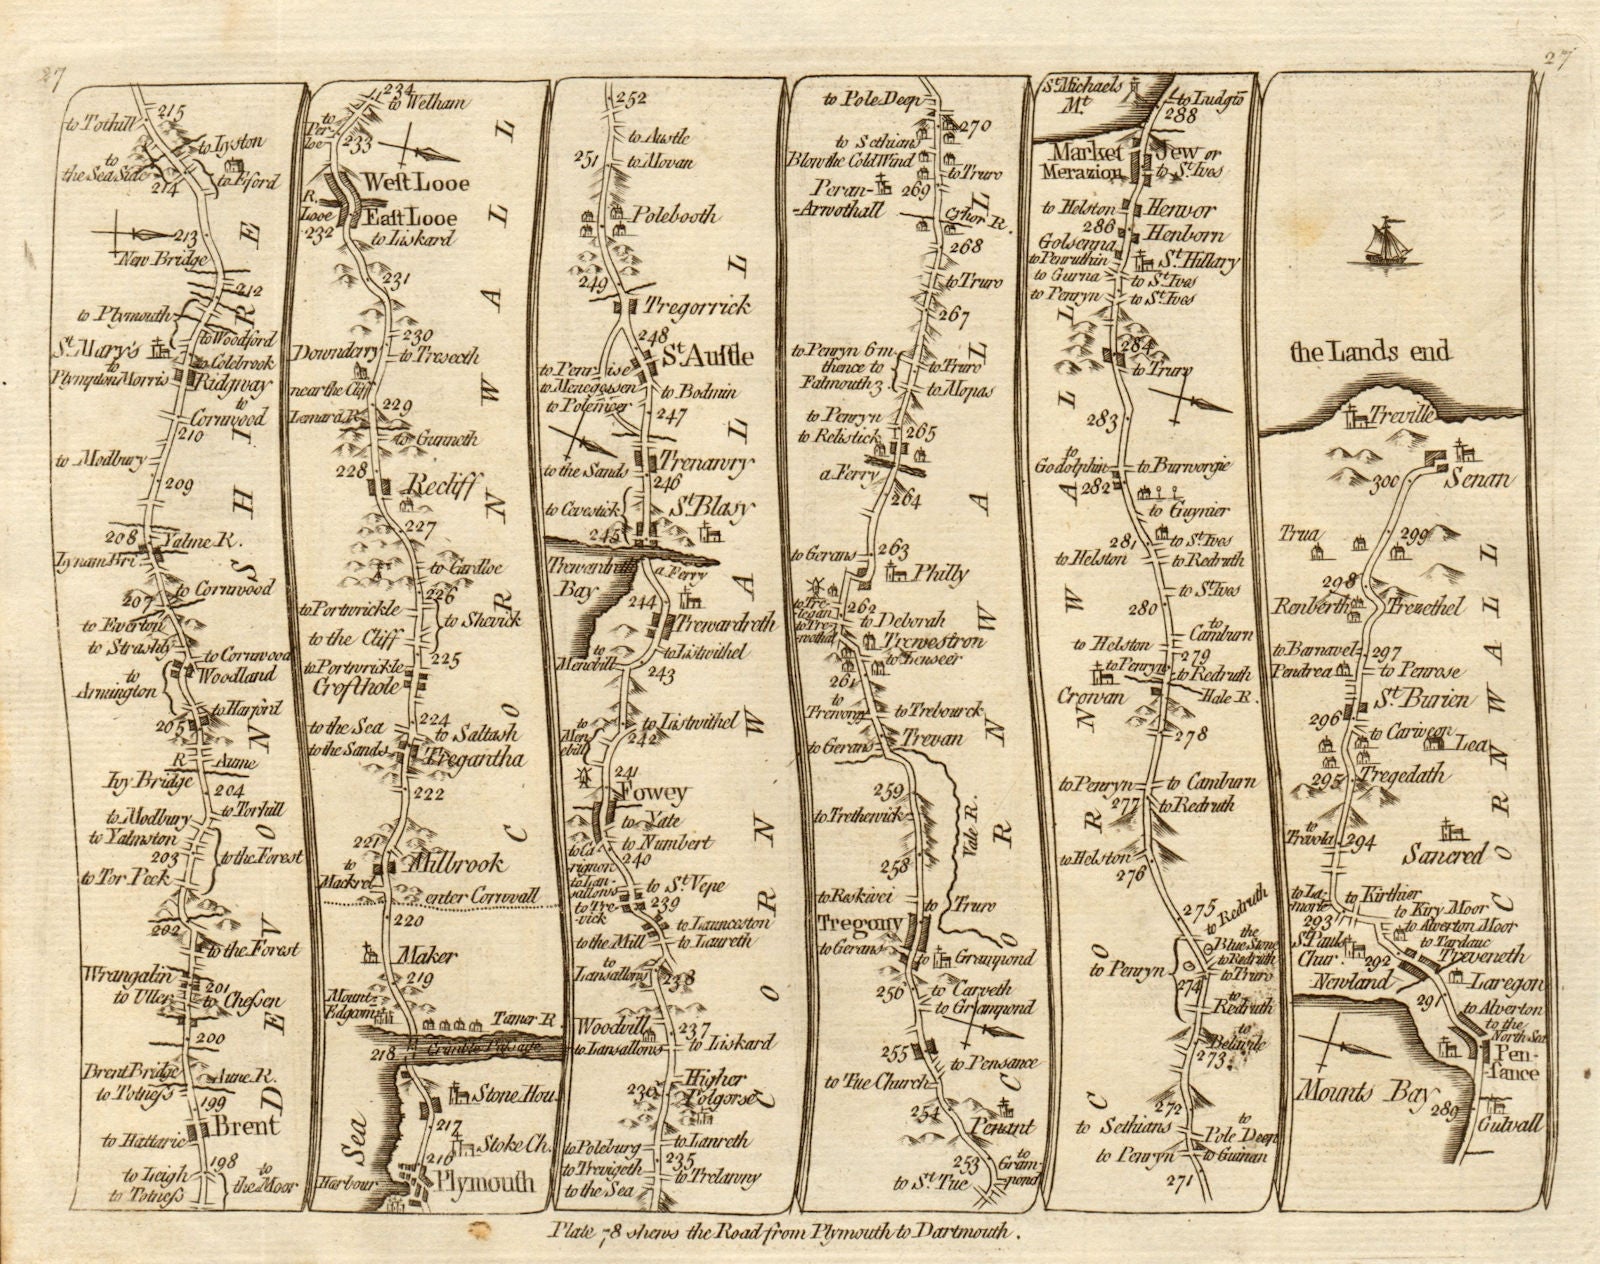 27
27
215
to Tothill
to Lyston
to the Sea Side
to Fford
214
213
New Bridge
212
to Plymouth
to Woodford
St. Mary's
to Colebrook
to Plympton Morris
Ridgway
to Cornwood
210
to Modbury
209
208
Yalme R.
Lynam Bri.
to Cornwood
207
to Everton
to Strashly
to Cornwood
Woodland
to Armington
to Harford
205
R Aume
Ivy Bridge
204
to Modbury
to Torhill
to Yalmston
203
to the Forest
to Tor Peek
202
to the Forest
Wrangalin
201
to Uller
to Chessen
200
Brent Bridge
Aune R.
to Totness
199
Brent
to Hattaric
198
to Leigh
to the Moor
to Totness
DEVONSHIRE
234
to Welham
to Perloe
233
West Looe
R. Looe
East Looe
232
to Liskard
231
230
Downderry
to Treseeth
near the Cliff
229
Lemara R.
to Gunneth
228
Recliff
227
to Cardloe
226
to Portwrickle
to Shevick
to the Cliff
225
to Portwrickle
Crofthole
224
to the Sea
to Saltash
to the Sands
Tregantha
222
221
Millbrook
to Mackrel
enter Cornwall
220
Maker
219
Mount Edgcomb
Tamer R.
218
Crimble Passage
Stone Hou.
217
Stoke Ch.
216
Sea
Harbour
Plymouth
CORNWALL
252
to Austle
251
to Movan
Polebooth
249
Tregorrick
248
St. Austle
to Penrise
to Menegessen
to Bodmin
to Polemeer
247
to the Sands
Trenawry
246
to Covestick
St. Blasy
245
Trewardreth Bay
a Ferry
244
Trewardreth
to Listwithel
to Menebill
243
to Listwithel
to Menebill
242
241
Fowey
to Yate
to Numbert
to Carignon
240
to Lansallows
to St. Vepe
to Trevick
239
to Launceston
to the Mill
to Laureth
to Lansallows
238
Woodvill
237
to Lansallows
to Liskard
Higher Polgorse
236
to Poleburg
to Lanreth
to Trevigeth
235
to the Sea
to Trelawny
CORNWALL
to Pole Deep
270
to Sethians
Blow the Cold Wind
to Truro
Peran-Arwothall
269
268
to Truro
267
to Penryn 6 m. thence to Falmouth 3
to Truro
to Mopas
to Penryn
265
to Relistick
a Ferry
264
to Gerans
263
Philly
262
to Trelegan
to Deborah
Trewestron
to Lenseer
261
to Trewony
to Trebourck
to Gerans
Trevan
259
to Tretherwick
Vale R.
258
to Reskivei
to Truro
Tregony
to Gerans
to Grampond
256
to Carveth
to Grampond
255
to Pensance
to Tue Church
254
Penant
253
to Grampond
to St. Tue
CORNWALL
St. Michaels Mt.
to Ludgto
288
Market Jew or
Merazion
to St. Ives
to Helston
Herwor
286
Henborn
Golsenna
to Penruthin
St. Hillary
to Gurna
to St. Ives
to Penryn
to St. Ives
284
to Truro
283
to Godolphin
to Burworgie
282
to Guynier
281
to St. Ives
to Helston
to Redruth
to St. Ives
280
to Camburn
to Helston
279
to Penryn
to Redruth
Crowan
Hale R.
278
to Penryn
to Camburn
277
to Redruth
to Helston
276
275
to Redruth
the Blue Stone
to Redruth
to Penryn
to Truro
274
to Redruth
to Belawle
273
272
to Sethians
to Pole Deep
to Penryn
to Guinan
271
CORNWALL
the Lands end
Treville
Senan
300
Trua
299
298
Renberth
Trezethel
to Barnavel
297
Pendrea
to Penrose
St. Burien
296
to Cariveon
Lea
295
Tregedath
to Trevola
294
Sancred
to Lamorie
to Kirthier
293
to Kiry Moor
to Alverton Moor
St. Pauls Chur.
to Tardauc
292
Treveneth
Newland
Laregon
291
to Alverton
to the North Sea
Pensance
Mounts Bay
289
Gulvall
CORNWALL
Plate 78 shews the Road from Plymouth to Dartmouth.